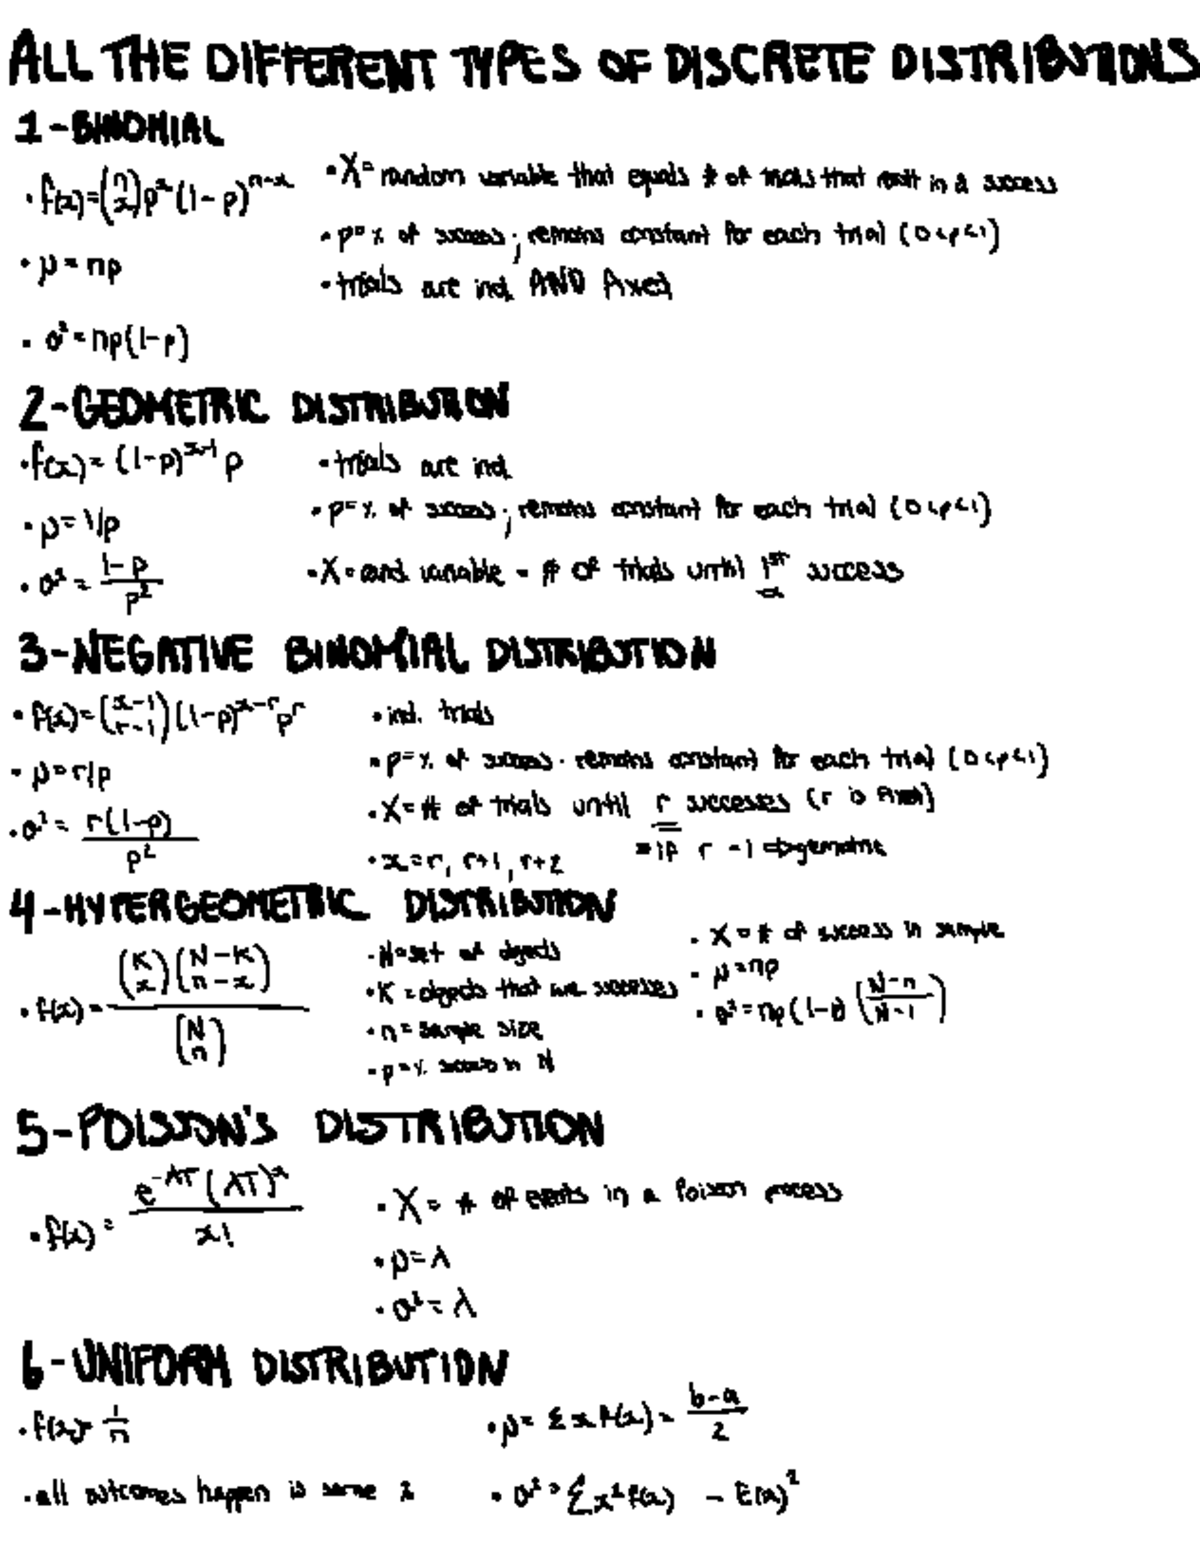 ALL THE DIFFERENT TYPES OF DISCRETE DISTRIBUTIONS
1-BINOMIAL
• f(x)=(n x)p^x(1-p)^n-x
• μ = np
• σ² = np(1-p)
• X= random variable that equals # of trials that result in a success
• p=% of success; remains constant for each trial (0<p<1)
• trials are ind. AND fixed
2-GEOMETRIC DISTRIBUTION
• f(x) = (1-p)^x-1 p
• μ = 1/p
• σ² = (1-p)/p²
• trials are ind.
• p=% of success; remains constant for each trial (0<p<1)
• X = rand variable = # of trials until 1st success
3-NEGATIVE BINOMIAL DISTRIBUTION
• f(x)=(x-1 r-1)(1-p)^x-r p^r
• μ=r/p
• σ² = r(1-p)/p²
• ind. trials
• p=% of success. remains constant for each trial (0<p<1)
• X=# of trials until r successes (r is fixed)
• x=r, r+1, r+2
if r = 1 => geometric
4-HYPERGEOMETRIC DISTRIBUTION
• f(x)= (K x)(N-K n-x)/(N n)
• N=set of objects
• K = objects that are successes
• n = sample size
• p=% success in N
• X = # of success in sample
• μ=np
• σ² = np(1-p)(N-n/N-1)
5-POISSON'S DISTRIBUTION
• f(x) = e^-λT(λT)^x/x!
• X = # of events in a Poisson process
• μ=λ
• σ² = λ
6-UNIFORM DISTRIBUTION
• f(x)= 1/n
• all outcomes happen is same %
• μ= Σxf(x) = b-a/2
• σ² = Σx²f(x) - E(x)²